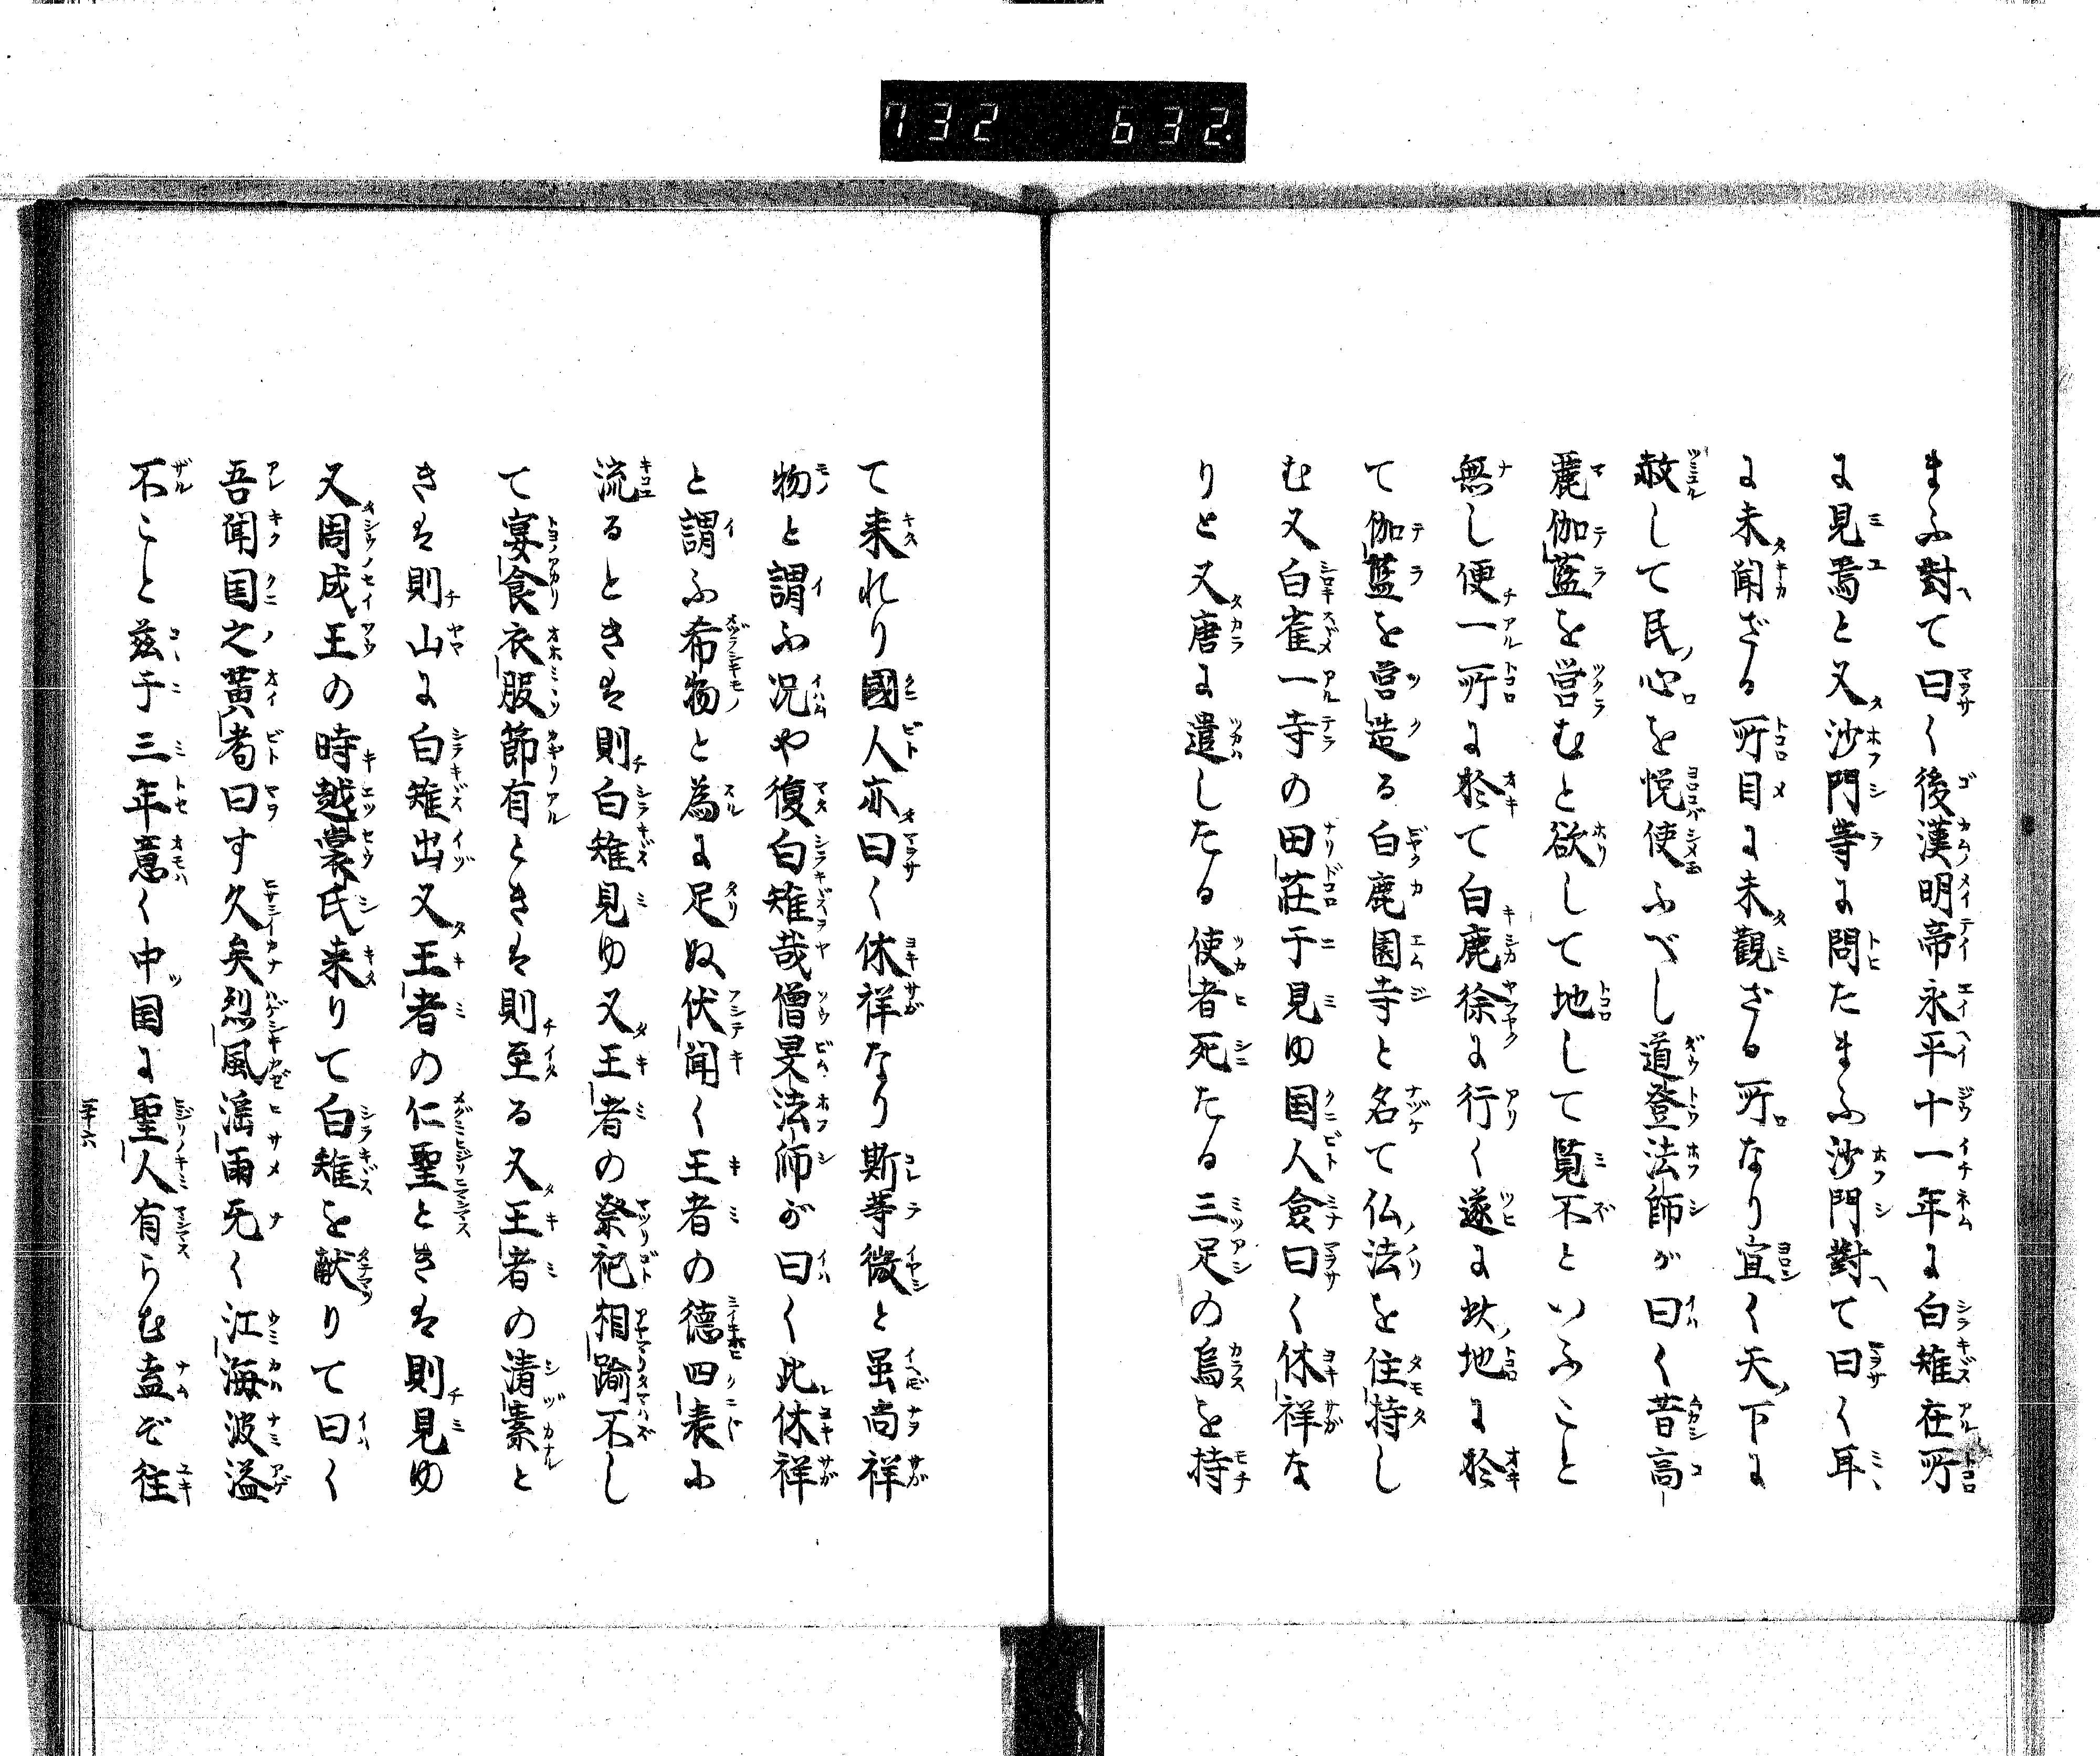 732 632.
まふ對て曰く後漢明帝永平十一年に白雉在所
に見焉と又沙門等に問たまふ沙門對て曰く耳
に未聞ざる所目に未覩ざる所なり宜く天下に
赦して民心を悦使ふべし道登法師が曰く昔高
麗伽藍を営むと欲して地して覧不といふこと
無し便一所に於て白鹿徐に行く遂に此地に於
て伽藍を営造る白鹿園寺と名て仏法を住持し
む又白雀一寺の田荘于見ゆ国人僉曰く休祥な
りと又唐に遣したる使者死たる三足の烏を持
て来れり國人亦曰く休祥なり斯等微と虽尚祥
物と謂ふ况や復白雉哉僧旻法師が曰く此休祥
と謂ふ希物と為に足ぬ伏聞く王者の德四表に
流るときは則白雉見ゆ又王者の祭祀相踰不し
て宴食衣服節有ときは則至る又王者の清素と
きは則山に白雉出又王者の仁聖ときは則見ゆ
又周成王の時越裳氏来りて白雉を献りて曰く
吾聞国之黄耇曰す久矣烈風淫雨无く江海波溢
不こと茲于三年意く中国に聖人有らむ盍ぞ往
三十六